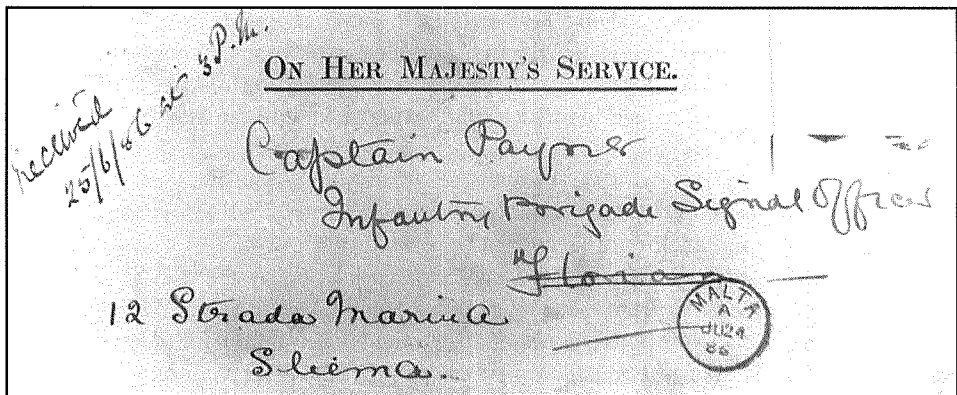 received
25/6/86 at 3 P.M.
ON HER MAJESTY'S SERVICE.
Captain Payne
Infantry Brigade Signal Officer
Florian
12 Strada Marina
Sliema.
MALTA
A
JU24
86